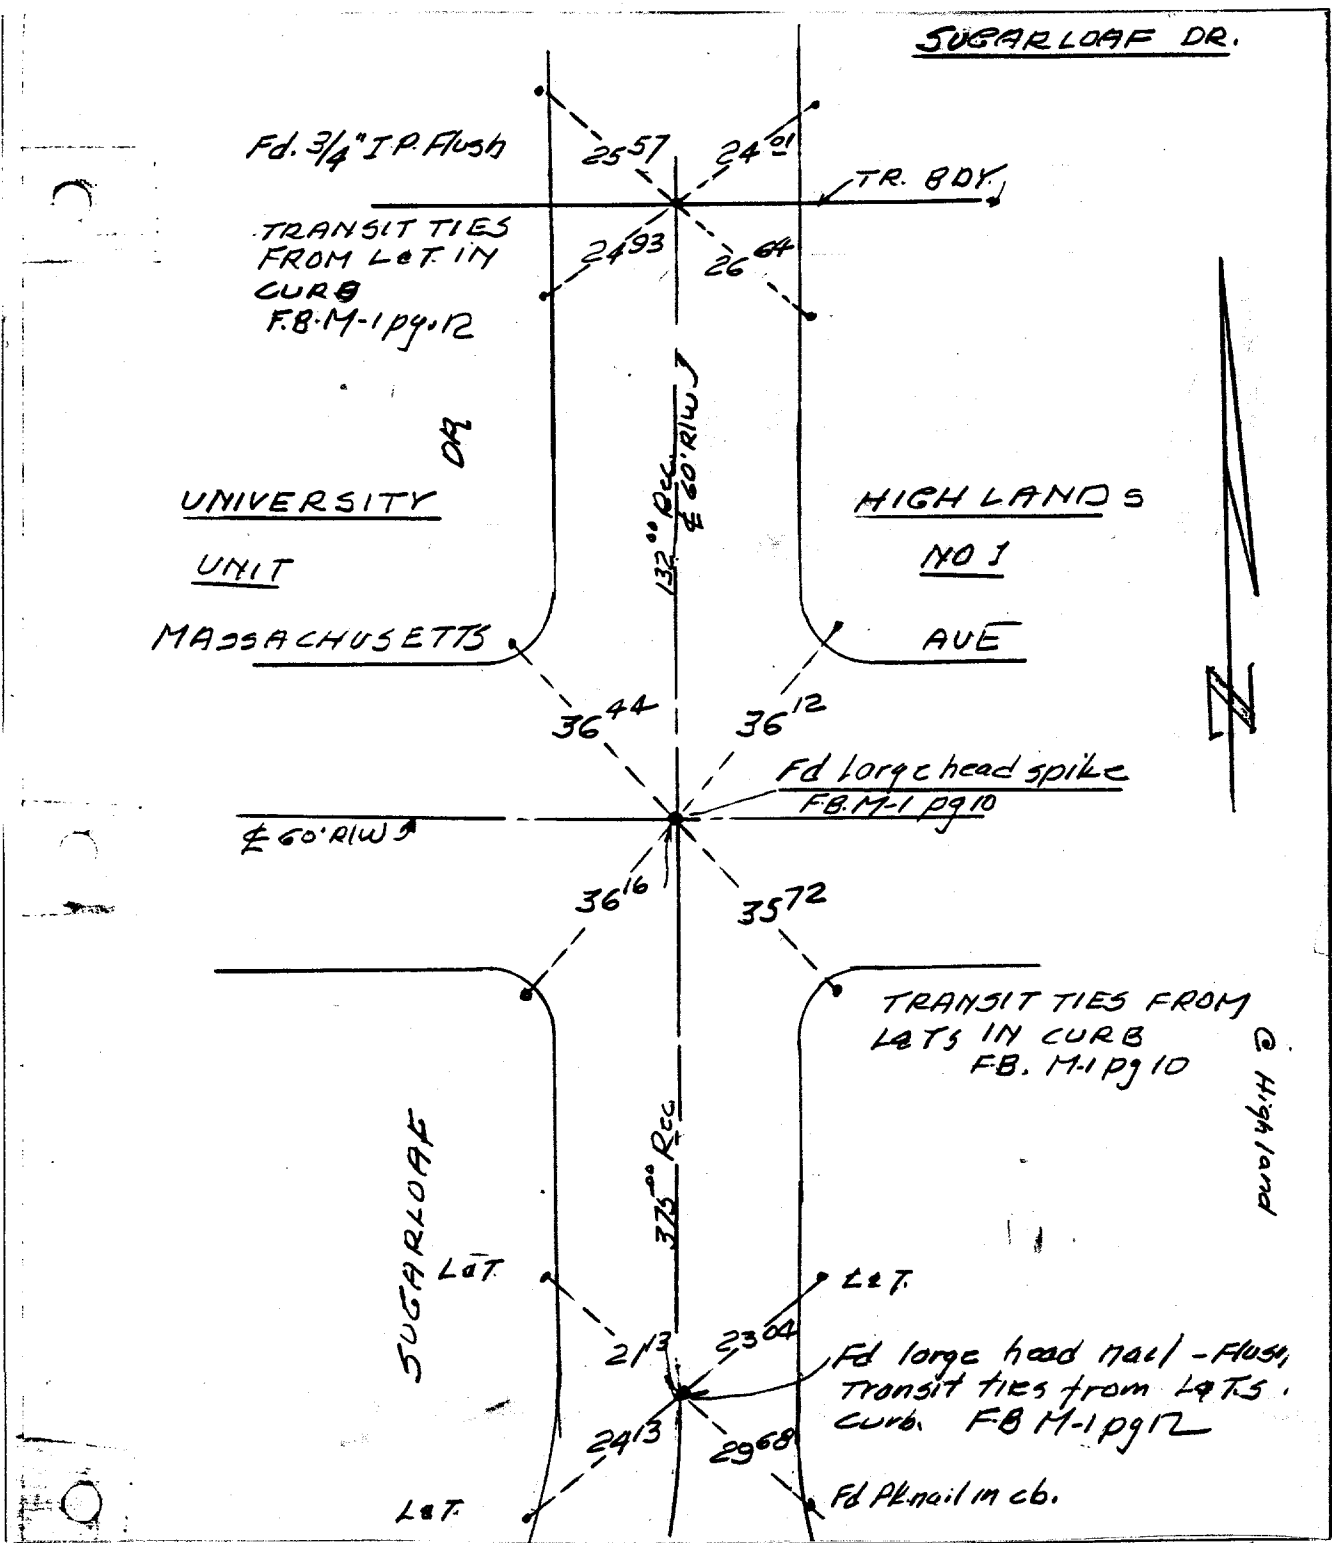 SUGARLOAF DR.
Fd. 3/4" I.P. Flush
25 57
24 01
TR. BDY.
TRANSIT TIES
FROM L&T. IN
CURB
F.B. M-1 pg. 12
24 93
26 64
DR
132 00 Rec.
℄ 60' R/W
UNIVERSITY
HIGHLANDS
UNIT
NO 1
MASSACHUSETTS
AVE
36 44
36 12
Fd large head spike
F.B. M-1 pg 10
℄ 60' R/W
N
36 16
35 72
TRANSIT TIES FROM
L&Ts IN CURB
F.B. M-1 pg 10
@ Highland
SUGARLOAF
375 00 Rec.
L&T.
L&T.
21 13
23 04
Fd large head nail - Flush,
Transit ties from L&T.s.
Curb. FB M-1 pg 12
24 13
29 68
L&T.
Fd Pk nail in cb.